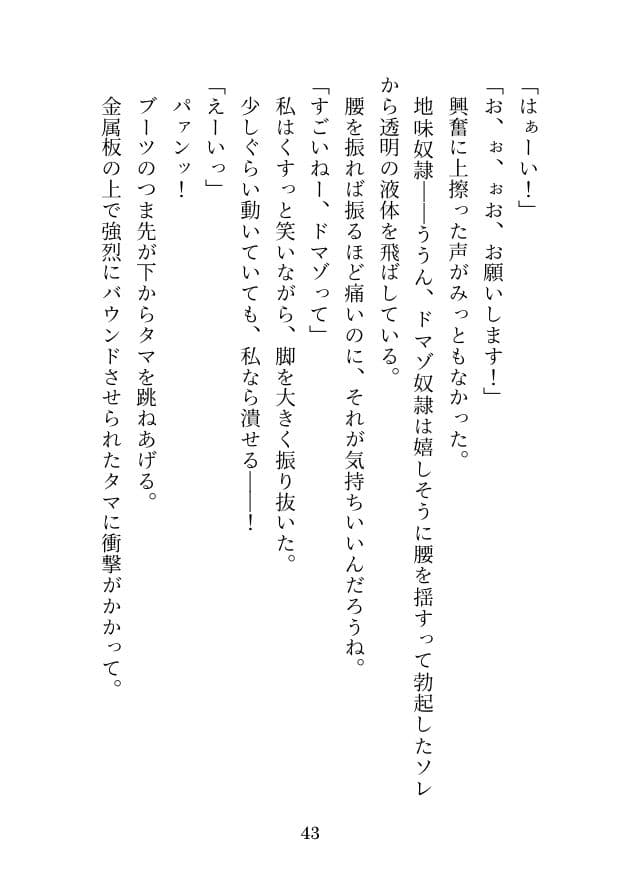 「はぁーい！」
「お、ぉ、ぉお、お願いします！」
興奮に上擦った声がみっともなかった。
地味奴隷――ううん、ドマゾ奴隷は嬉しそうに腰を揺すって勃起したソレ
から透明の液体を飛ばしている。
腰を振れば振るほど痛いのに、それが気持ちいいんだろうね。
「すごいねー、ドマゾって」
私はくすっと笑いながら、脚を大きく振り抜いた。
少しぐらい動いていても、私なら潰せる――！
「えーいっ」
パァンッ！
ブーツのつま先が下からタマを跳ねあげる。
金属板の上で強烈にバウンドさせられたタマに衝撃がかかって。
43